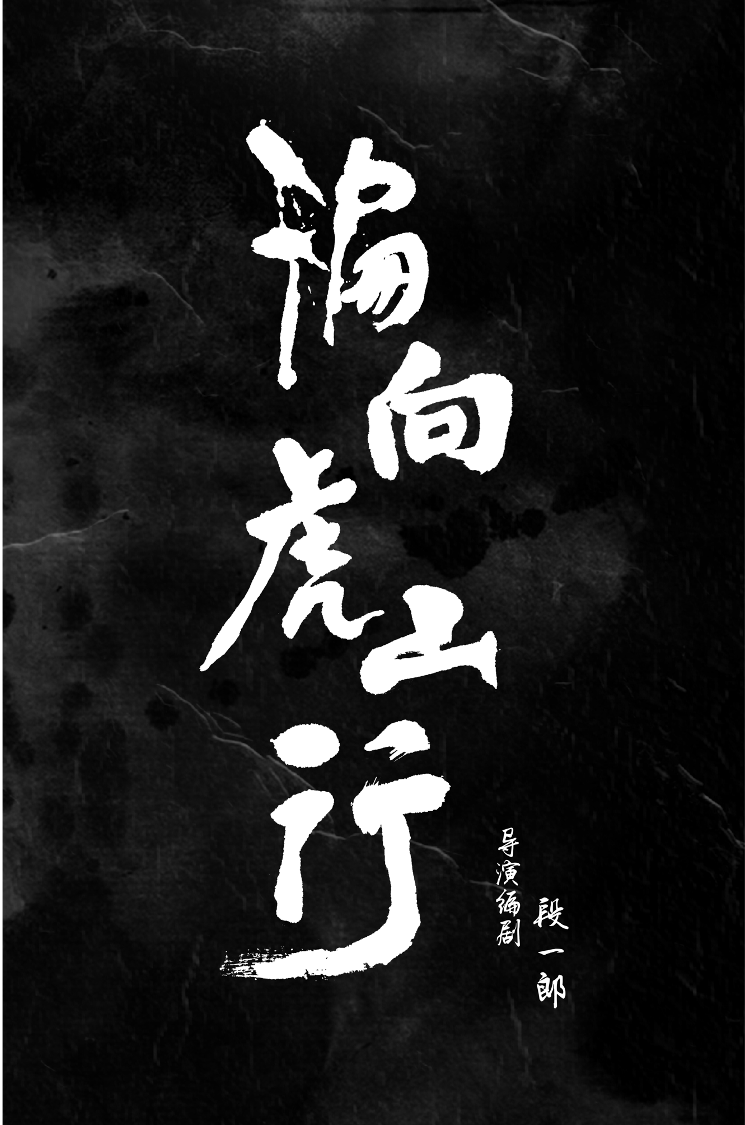 偏向虎山行
导演编剧
段一郎